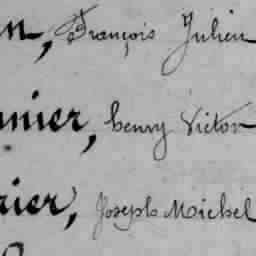 n, François Julien
nier, henry Victor
rier, Joseph Michel